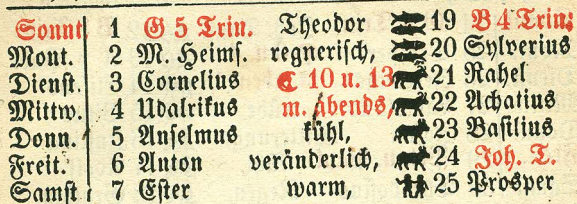 Sonnt. 1 G 5 Trin. Theodor 19 B 4 Trin.
Mont. 2 M. Heims. regnerisch, 20 Sylverius
Dienst. 3 Cornelius ☾ 10 u. 13 21 Rahel
Mittw. 4 Udalrikus m. abends, 22 Achatius
Donn. 5 Anselmus kühl, 23 Basilius
Freit. 6 Anton veränderlich, 24 Joh. T.
Samst 7 Ester warm, 25 Prosper